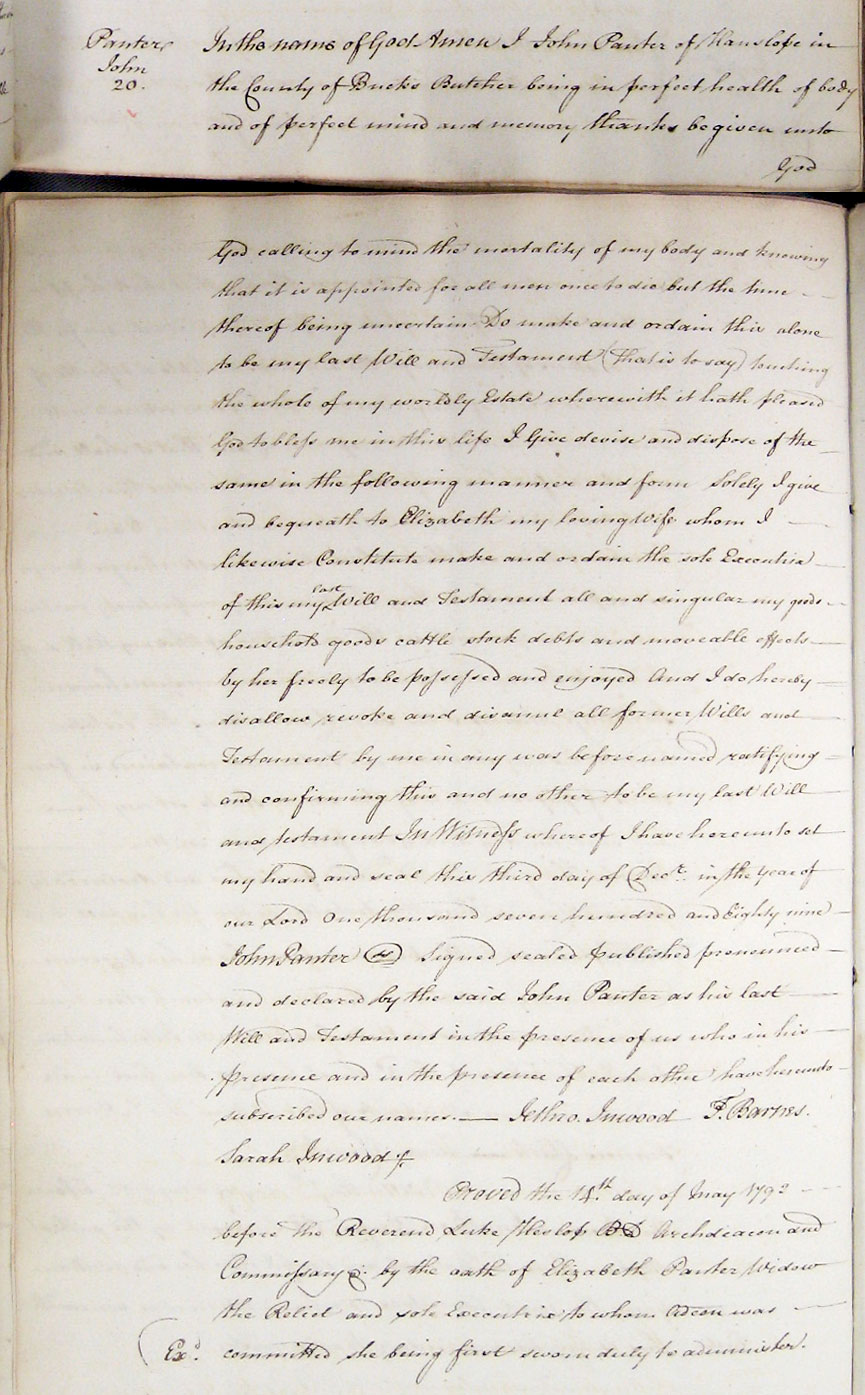 Panter
John
20.
In the name of God Amen I John Panter of Hanslope in
the County of Bucks Butcher being in perfect health of body
and of perfect mind and memory thanks be given unto
God
God calling to mind the mortality of my body and knowing
that it is appointed for all men once to die but the time
thereof being uncertain Do make and ordain this alone
to be my last Will and Testament (that is to say) touching
the whole of my worldly Estate wherewith it hath pleased
God to bless me in this life I Give devise and dispose of the
same in the following manner and form Solely I give
and bequeath to Elizabeth my loving Wife whom I
likewise Constitute make and ordain the sole Executrix
of this my last Will and Testament all and singular my goods
household goods cattle stock debts and moveable effects
by her freely to be possessed and enjoyed And I do hereby
disallow revoke and disannul all former Wills and
Testament by me in any was before named ratifying
and confirming this and no other to be my last Will
and testament In Witness whereof I have hereunto set
my hand and seal this third day of Decr. in the year of
our Lord One thousand seven hundred and Eighty nine
John Panter (LS) Signed sealed published pronounced
and declared by the said John Panter as his last
Will and Testament in the presence of us who in his
presence and in the presence of each other have hereunto
subscribed our names. Jethro. Inwood F. Barnes.
Sarah Inwood
Proved the 14th. day of May 1792
before the Reverend Luke Heslop BD Archdeacon and
Commissary &c. by the oath of Elizabeth Panter Widow
the Relict and sole Executrix to whom admon was
Exd. committed she being first sworn duly to administer.